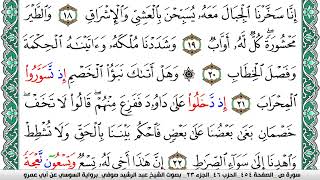 إِنَّا سَخَّرْنَا الْجِبَالَ مَعَهُ يُسَبِّحْنَ بِالْعَشِيِّ وَالْإِشْرَاقِ ١٨ وَالطَّيْرَ
مَحْشُورَةً كُلٌّ لَهُ أَوَّابٌ ١٩ وَشَدَدْنَا مُلْكَهُ وَءَاتَيْنَاهُ الْحِكْمَةَ
وَفَصْلَ الْخِطَابِ ٢٠ وَهَلْ أَتَىٰكَ نَبَؤُا الْخَصْمِ إِذ تَّسَوَّرُوا
الْمِحْرَابَ ٢١ إِذ دَّخَلُوا عَلَىٰ دَاوُدَ فَفَزِعَ مِنْهُمْ قَالُوا لَا تَخَفْ
خَصْمَانِ بَغَىٰ بَعْضُنَا عَلَىٰ بَعْضٍ فَاحْكُم بَيْنَنَا بِالْحَقِّ وَلَا تُشْطِطْ
وَاهْدِنَا إِلَىٰ سَوَاءِ الصِّرَاطِ ٢٢ إِنَّ هَٰذَا أَخِي لَهُ تِسْعٌ وَتِسْعُونَ نَعْجَةً
سورة ص . الصفحة ٤٥٤ الحزب ٤٦ الجزء ٢٣ بصوت الشيخ عبد الرشيد صوفي برواية السوسي عن أبي عمرو